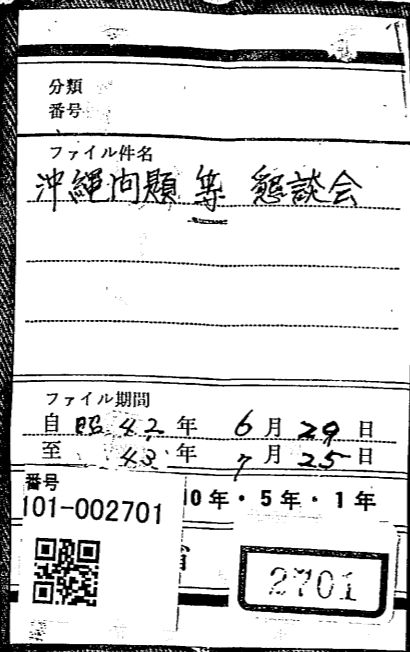 分類
番号
ファイル件名
沖縄問題等 懇談会
ファイル期間
自 昭 42 年 6 月 29 日
至 43 年 7 月 25 日
番号
101-002701
0年・5年・1年
2701